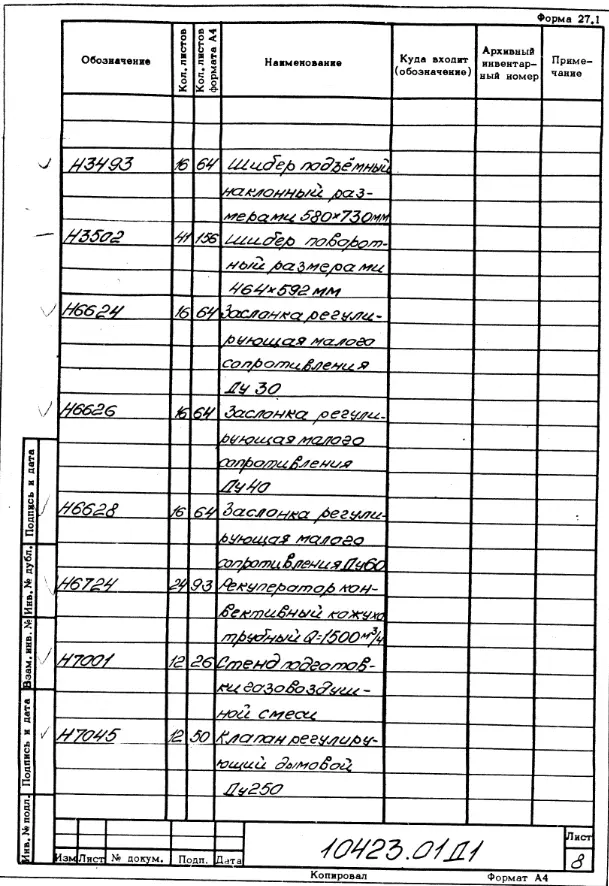 Форма 27.1
Обозначение Кол. листов Кол. листов формата А4 Наименование Куда входит (обозначение) Архивный инвентар- ный номер Приме- чание
Н3493 16 64 Шибер подъёмный
наклонный раз-
мерами 580×730мм
Н3502 41 156 Шибер поворот-
ный размерами
464×592 мм
Н6624 16 64 Заслонка регули-
рующая малого
сопротивления
Ду 30
Н6626 16 64 Заслонка регули-
рующая малого
сопротивления
Ду40
Н6628 16 64 Заслонка регули-
рующая малого
сопротивления Ду60
Н6724 24 93 Рекуператор кон-
вективный кожухо
трубный Q=1500м³/ч
Н7001 12 26 Стенд подготов-
ки газовоздуш-
ной смеси
Н7045 12 50 Клапан регулиру-
ющий дымовой
Ду250
Подпись и дата
Инв.№ дубл.
Взам. инв. №
Подпись и дата
Инв.№ подл.
Изм Лист № докум. Подп. Дата
10423.01Д1
Лист
8
Копировал Формат А4